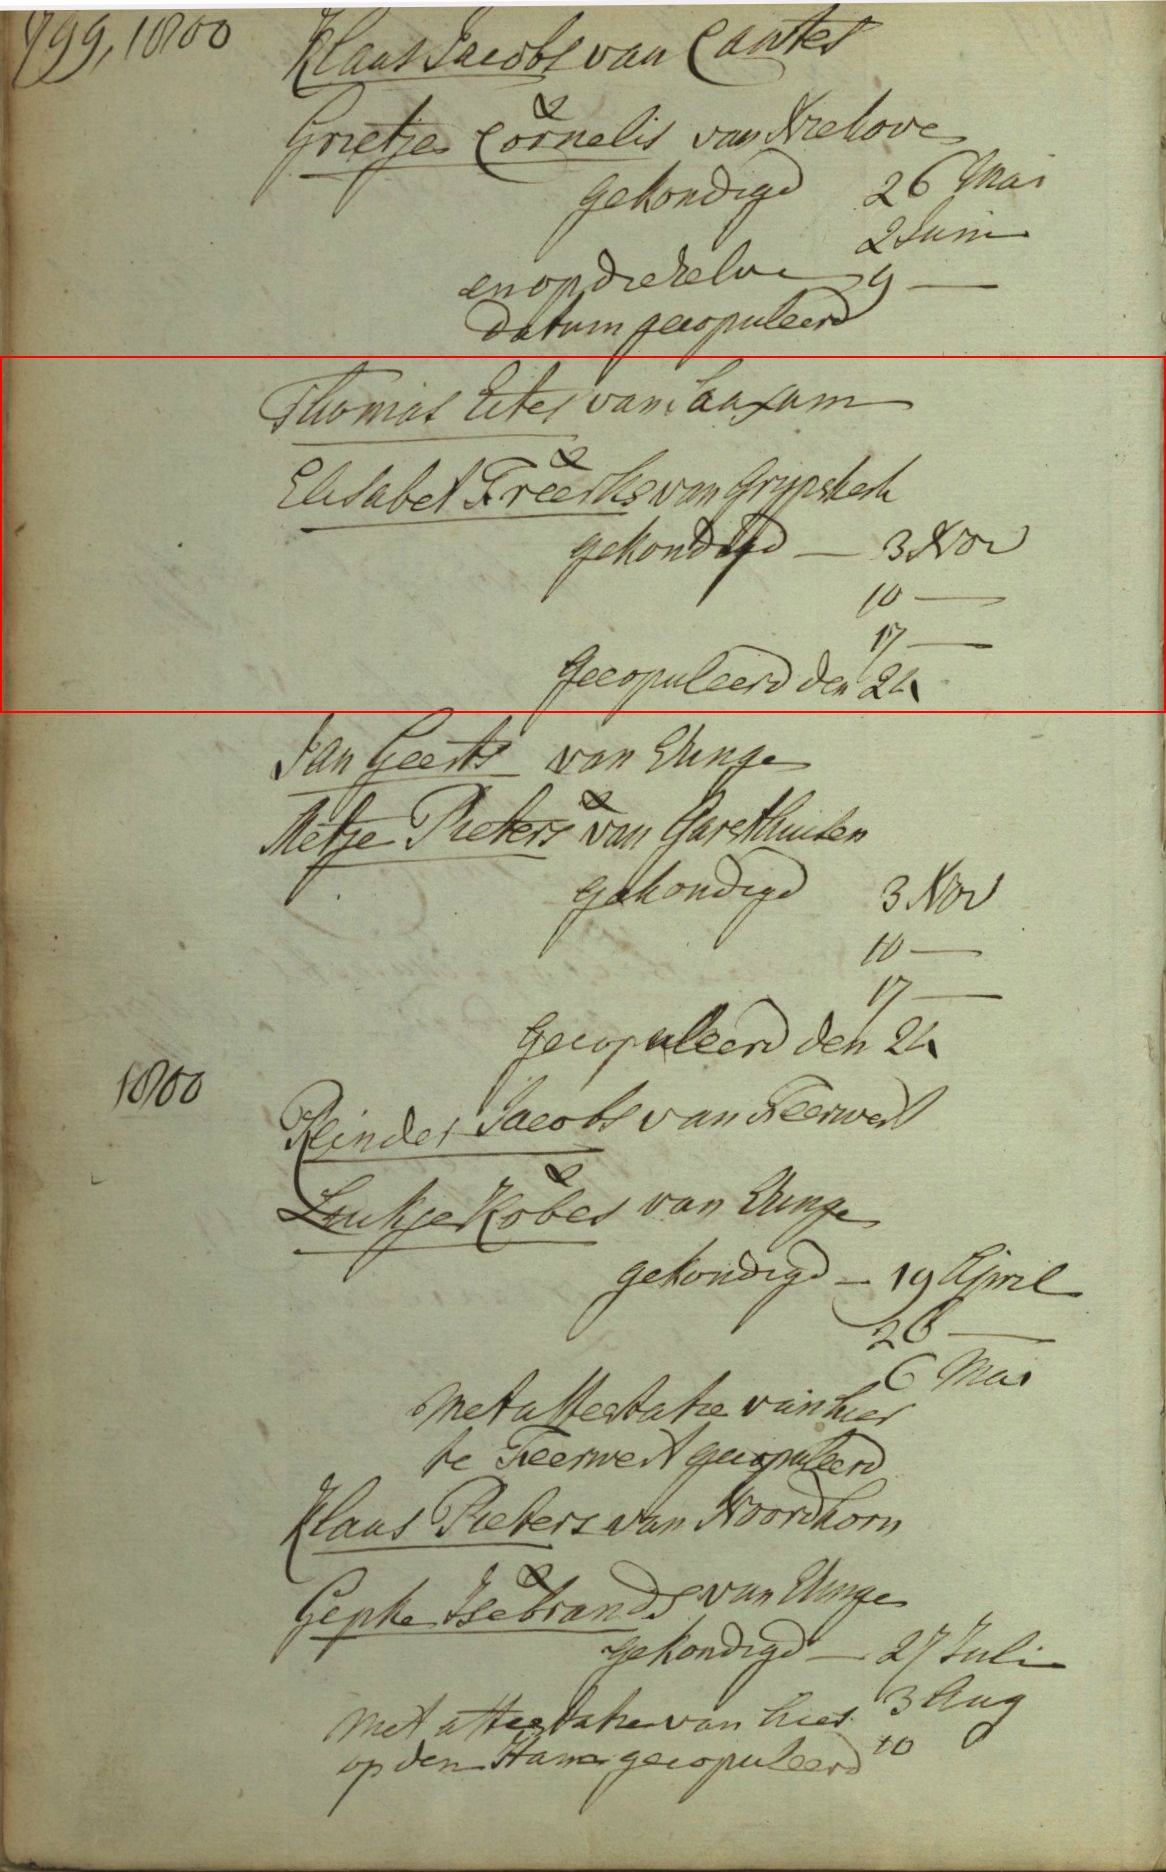 799, 1800
Klaas Jacobs van Cantes
&
Grietje Cornelis van
gekondigd 26 Mai
2 Juni
en op dezelve 9 —
datum gecopuleerd
Thomas Eites van Saaxum
&
Elisabet Freerks van Grypskerk
gekondigd — 3 Nov
10 —
17 —
gecopuleerd den 24
Jan Geerts van Ezinge
&
Metje Pieters van Garsthuisen
gekondigd 3 Nov
10 —
17 —
Gecopuleerd den 24
1800
Reinder Jacobs van Feerwert
&
Kobes van Ezinge
gekondigd — 19 April
26 —
6 Mai
Met attestatie van hier
te Feerwert gecopuleerd
Klaas Pieters van Noordhorn
&
Gepke Isebrands van Ezinge
gekondigd — 27 Juli
3 Aug
Met attestatie van hier
10
op den Ham gecopuleerd